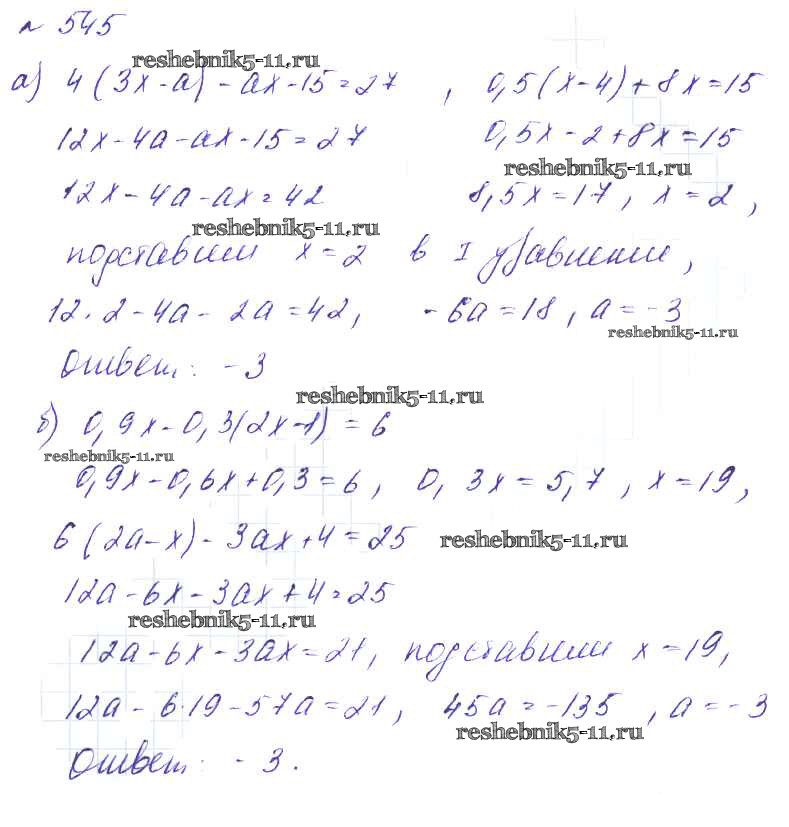 № 545
reshebnik5-11.ru
а) 4(3x-a)-ax-15=27, 0,5(x-4)+8x=15
12x-4a-ax-15=27 0,5x-2+8x=15
reshebnik5-11.ru
12x-4a-ax=42 8,5x=17, x=2,
reshebnik5-11.ru
подставим x=2 в I уравнение,
12·2-4a-2a=42, -6a=18, a=-3
reshebnik5-11.ru
Ответ: -3
reshebnik5-11.ru
б) 0,9x-0,3(2x-1)=6
reshebnik5-11.ru
0,9x-0,6x+0,3=6, 0,3x=5,7, x=19,
6(2a-x)-3ax+4=25 reshebnik5-11.ru
12a-6x-3ax+4=25
reshebnik5-11.ru
12a-6x-3ax=21, подставим x=19,
12a-6·19-57a=21, 45a=-135, a=-3
reshebnik5-11.ru
Ответ: -3.